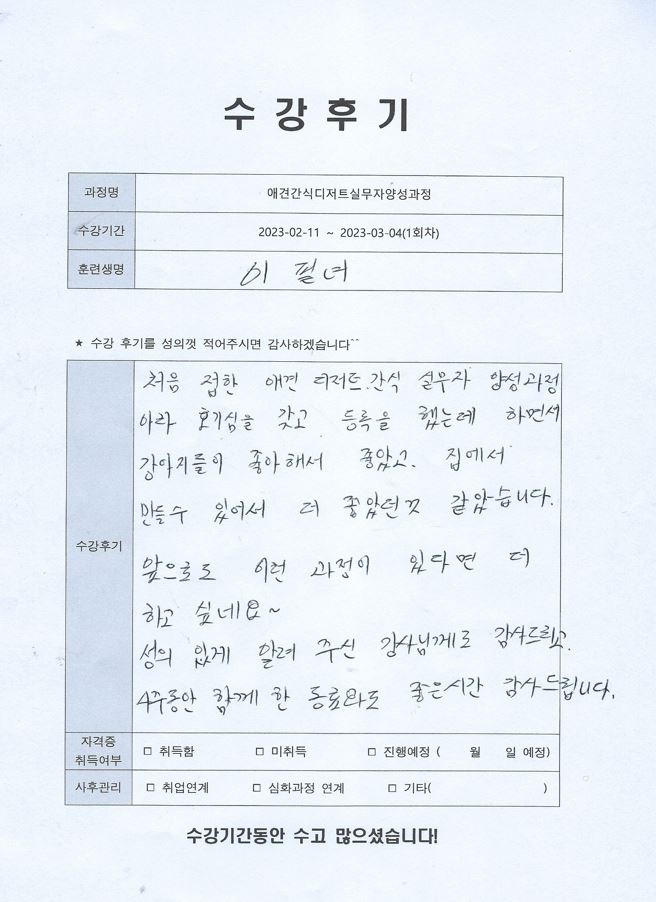 수강후기
과정명 애견간식디저트실무자양성과정
수강기간 2023-02-11 ~ 2023-03-04(1회차)
훈련생명 이필녀
★ 수강 후기를 성의껏 적어주시면 감사하겠습니다^^
수강후기
처음 접한 애견 디저트.간식 실무자 양성과정
이라 호기심을 갖고 등록을 했는데 하면서
강아지들이 좋아해서 좋았고. 집에서
만들수 있어서 더 좋았던것 같았습니다.
앞으로도 이런 과정이 있다면 더
하고 싶네요~
성의 있게 알려 주신 강사님께도 감사드리고.
4주동안 함께 한 동료와도 좋은시간 감사드립니다.
자격증 취득여부 □ 취득함 □ 미취득 □ 진행예정 ( 월 일 예정)
사후관리 □ 취업연계 □ 심화과정 연계 □ 기타( )
수강기간동안 수고 많으셨습니다!